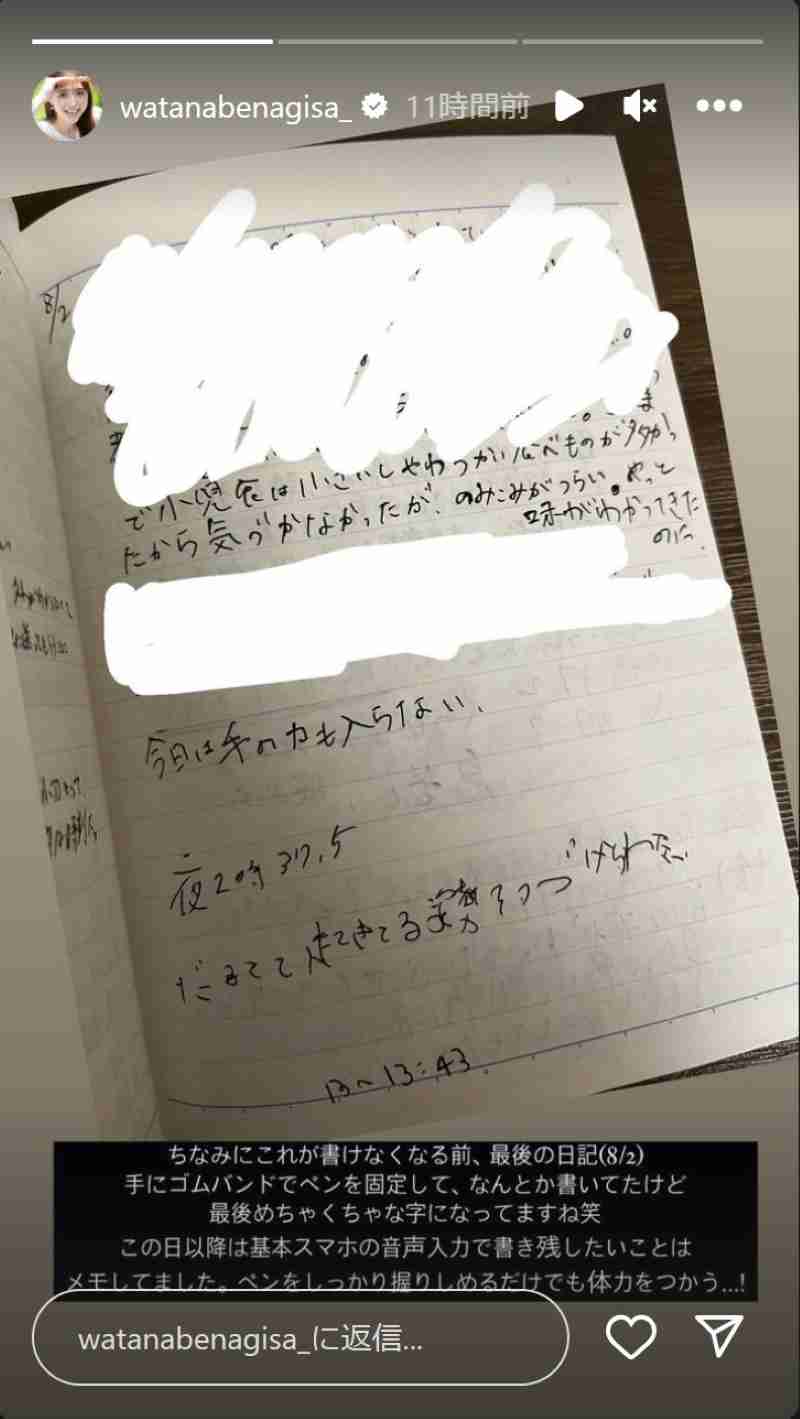 watanabenagisa_ 11時間前
8/2
で小児食は小さいしやわらかい食べものが多かっ
たから気づかなかったが、のみこみがつらい。やっと
味がわかってきた
のに、
今日は手の力も入らない、
夜2時 37.5
13〜13:43
ちなみにこれが書けなくなる前、最後の日記(8/2)
手にゴムバンドでペンを固定して、なんとか書いてたけど
最後めちゃくちゃな字になってますね笑
この日以降は基本スマホの音声入力で書き残したいことは
メモしてました。ペンをしっかり握りしめるだけでも体力をつかう...!
watanabenagisa_に返信...